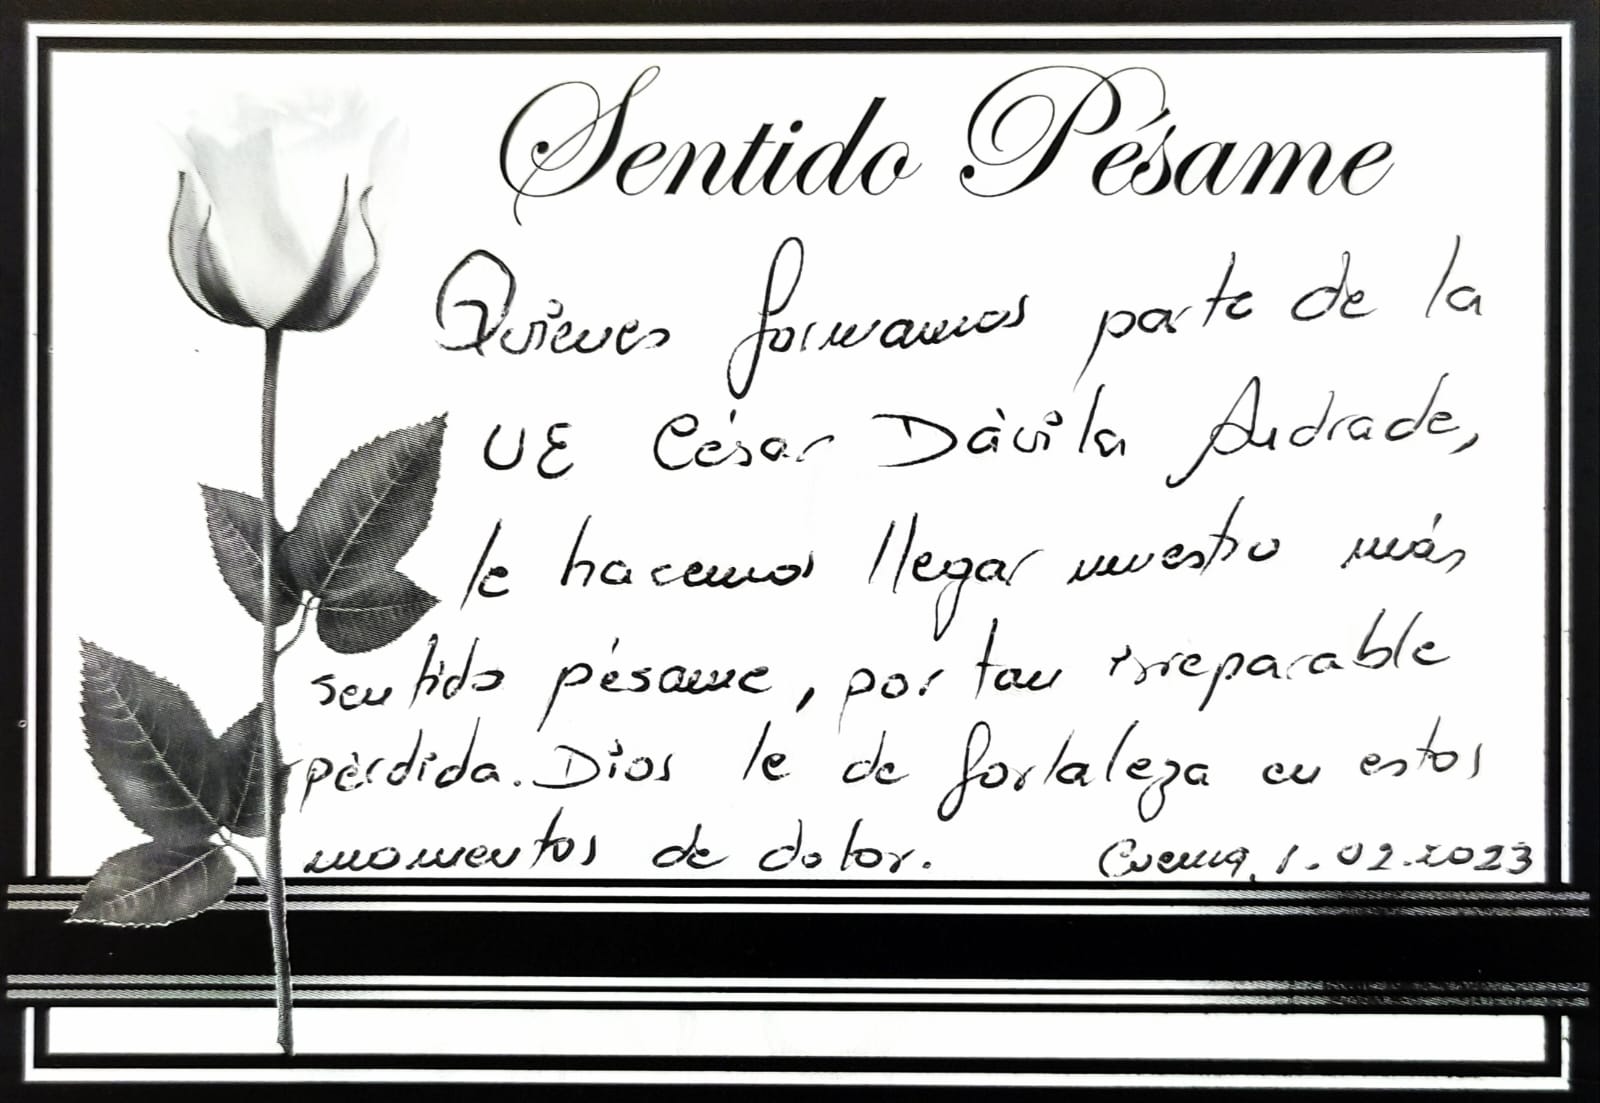 Sentido Pésame
Quienes formamos parte de la
UE César Dàvila Andrade,
le hacemos llegar nuestro más
sentido pésame, por tan irreparable
pèrdida. Dios le de fortaleza en estos
momentos de dolor. Cuenca, 1.02.2023